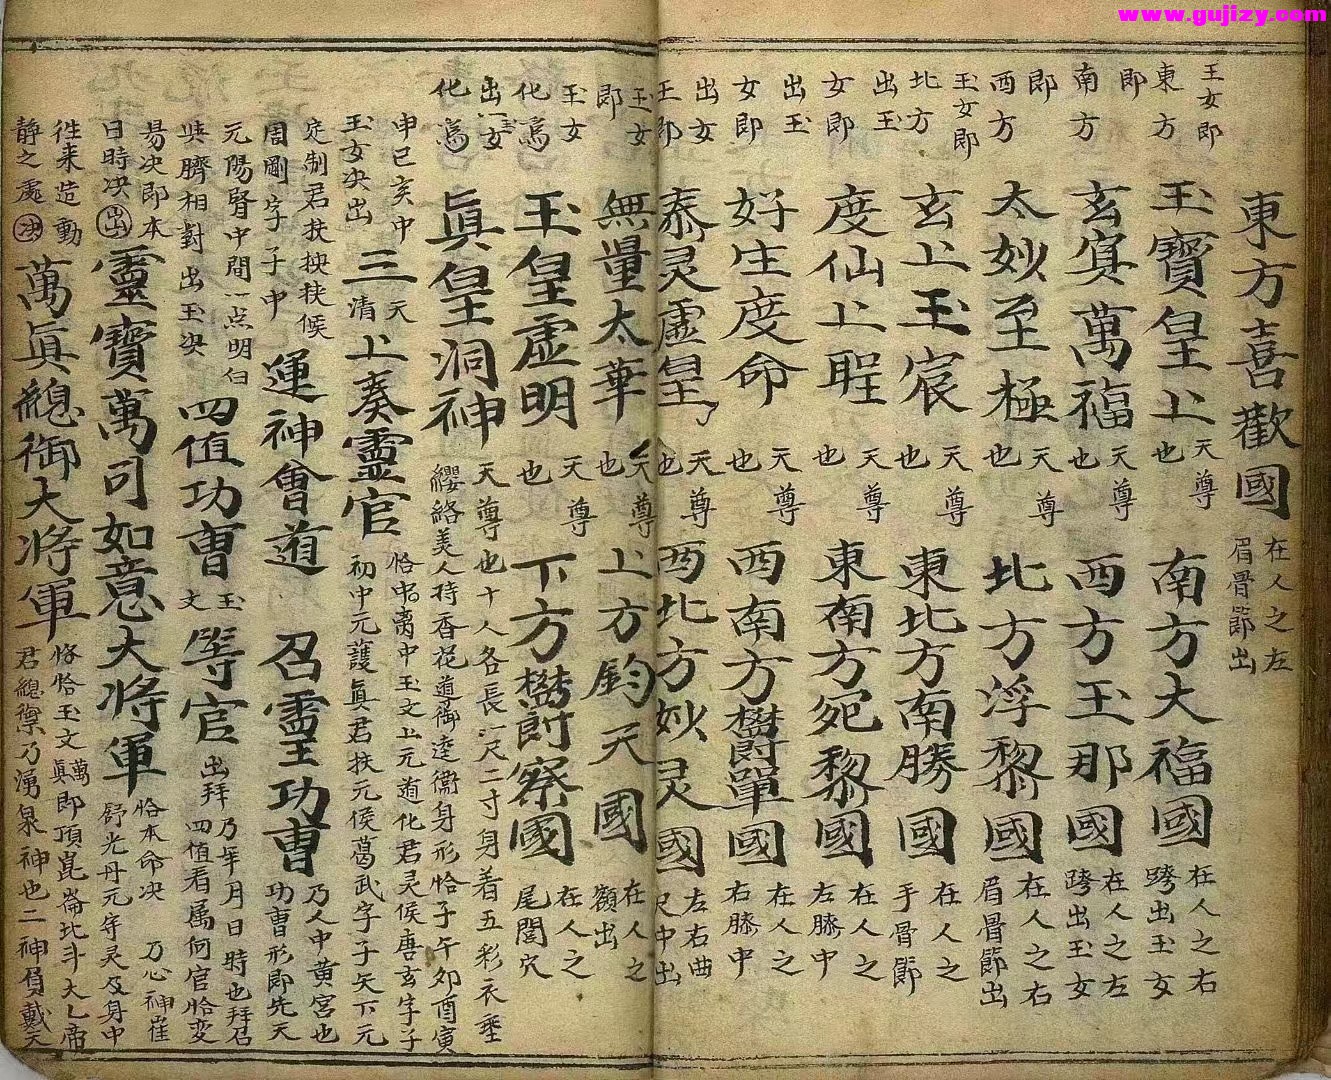 www.gujizy.com
東方喜歡國 在人之左眉骨節出
玉女即東方 玉寶皇上 天尊也 南方大福國 在人之右跨出玉女
即南方 玄真萬福 天尊也 西方玉那國 在人之左跨出玉女
即西方 太妙至極 天尊也 北方浮黎國 在人之右眉骨節出
玉女即北方 玄上玉宸 天尊也 東北方南勝國 在人之手骨節
出玉女即 度仙上聖 天尊也 東南方宛黎國 在人之左膝中
出玉女即 好生度命 天尊也 西南方欝單國 在人之右膝中
出女玉即 泰灵虛皇 天尊也 西北方妙灵國 左右曲尺中出
玉女即 無量太華 天尊也 上方鈞天國 在人之額出
玉女化爲 玉皇虛明 天尊也 下方欝察國 在人之尾閭穴
出玉女化爲 眞皇洞神 天尊也十人各長一尺二寸身着五彩衣垂纓絡美人持香花道御逵衞身形恰子午卯酉寅
申巳亥中玉女决出 三天清上奏靈官 恰申离中玉文上元道化君灵侯唐玄字子初中元護眞君扶元侯葛武字子矢下元
定制君扶抰扶候周剛字子中 運神會道 召靈王功曹 乃人中黄宮也功曹形即先天
元陽腎中間一点明白與臍相對出玉决 四值功曹玉文等官 出拜乃年月日時也拜召四值看属何官恰变
昜决即本日時决出 靈寶萬司如意大將軍 恰本命决 乃心神崔舒光丹元守灵及身中
徃来造動静之處决 萬眞總御大將軍 恪恰玉文萬眞即頂崑崙北斗大乙帝君總禦乃湧泉神也二神負戴天